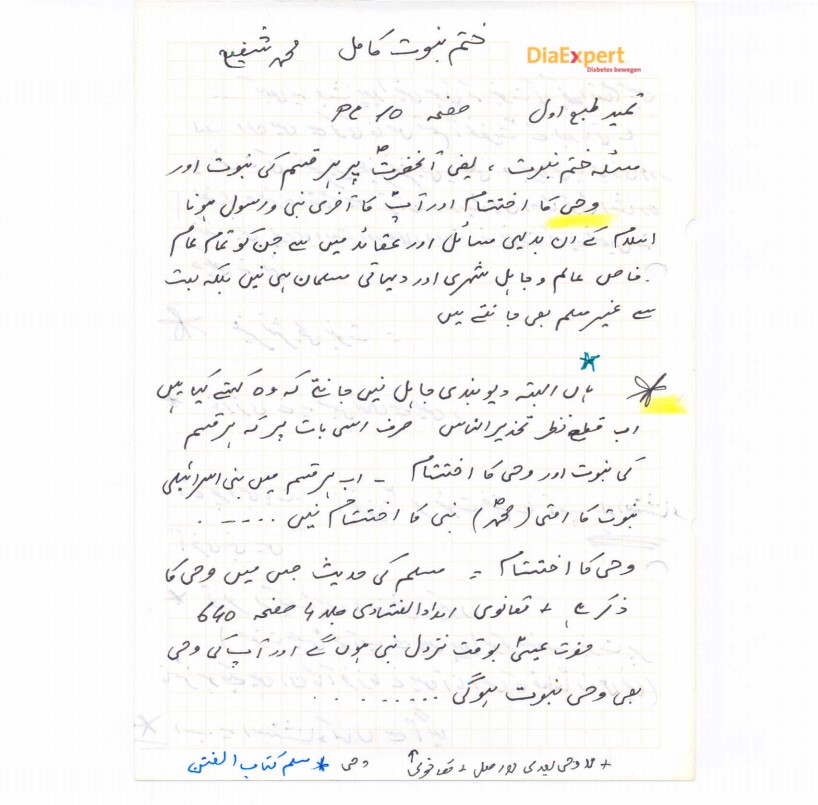 ختم نبوت کامل محمد شفیع
DiaExpert
Diabetes bewegen
تمہید طبع اول صفحہ 10
مسئلہ ختم نبوت ، یعنی آنحضرتؐ پر ہر قسم کی نبوت اور
وحی کا اختتام اور آپؐ کا آخری نبی و رسول ہونا
اسلام کے ان بدیہی مسائل اور عقائد میں سے جن کو تمام عام
خاص عالم و جاہل شہری اور دیہاتی مسلمان ہی نہیں بلکہ بہت
سے غیر مسلم بھی جانتے ہیں
ہاں البتہ دیوبندی جاہل نہیں جانتے کہ وہ کہتے کیا ہیں
اب قطع نظر تحذیر الناس صرف اسی بات پر کہ ہر قسم
کی نبوت اور وحی کا اختتام - اب ہر قسم میں بنی اسرائیلی
نبوت کا امتی (محمدؐ) نبی کا اختتام نہیں .....
وحی کا اختتام = مسلم کی حدیث جس میں وحی کا
ذکر ہے + تھانوی امداد الفتاوی جلد 4 صفحہ 640
حضرت عیسیٰؑ بوقت نزول نبی ہوں گے اور آپ کی وحی
بھی وحی نبوت ہوگی ..........
+ لا وحی بعدی + تھانوی وحی * مسلم کتاب الفتن